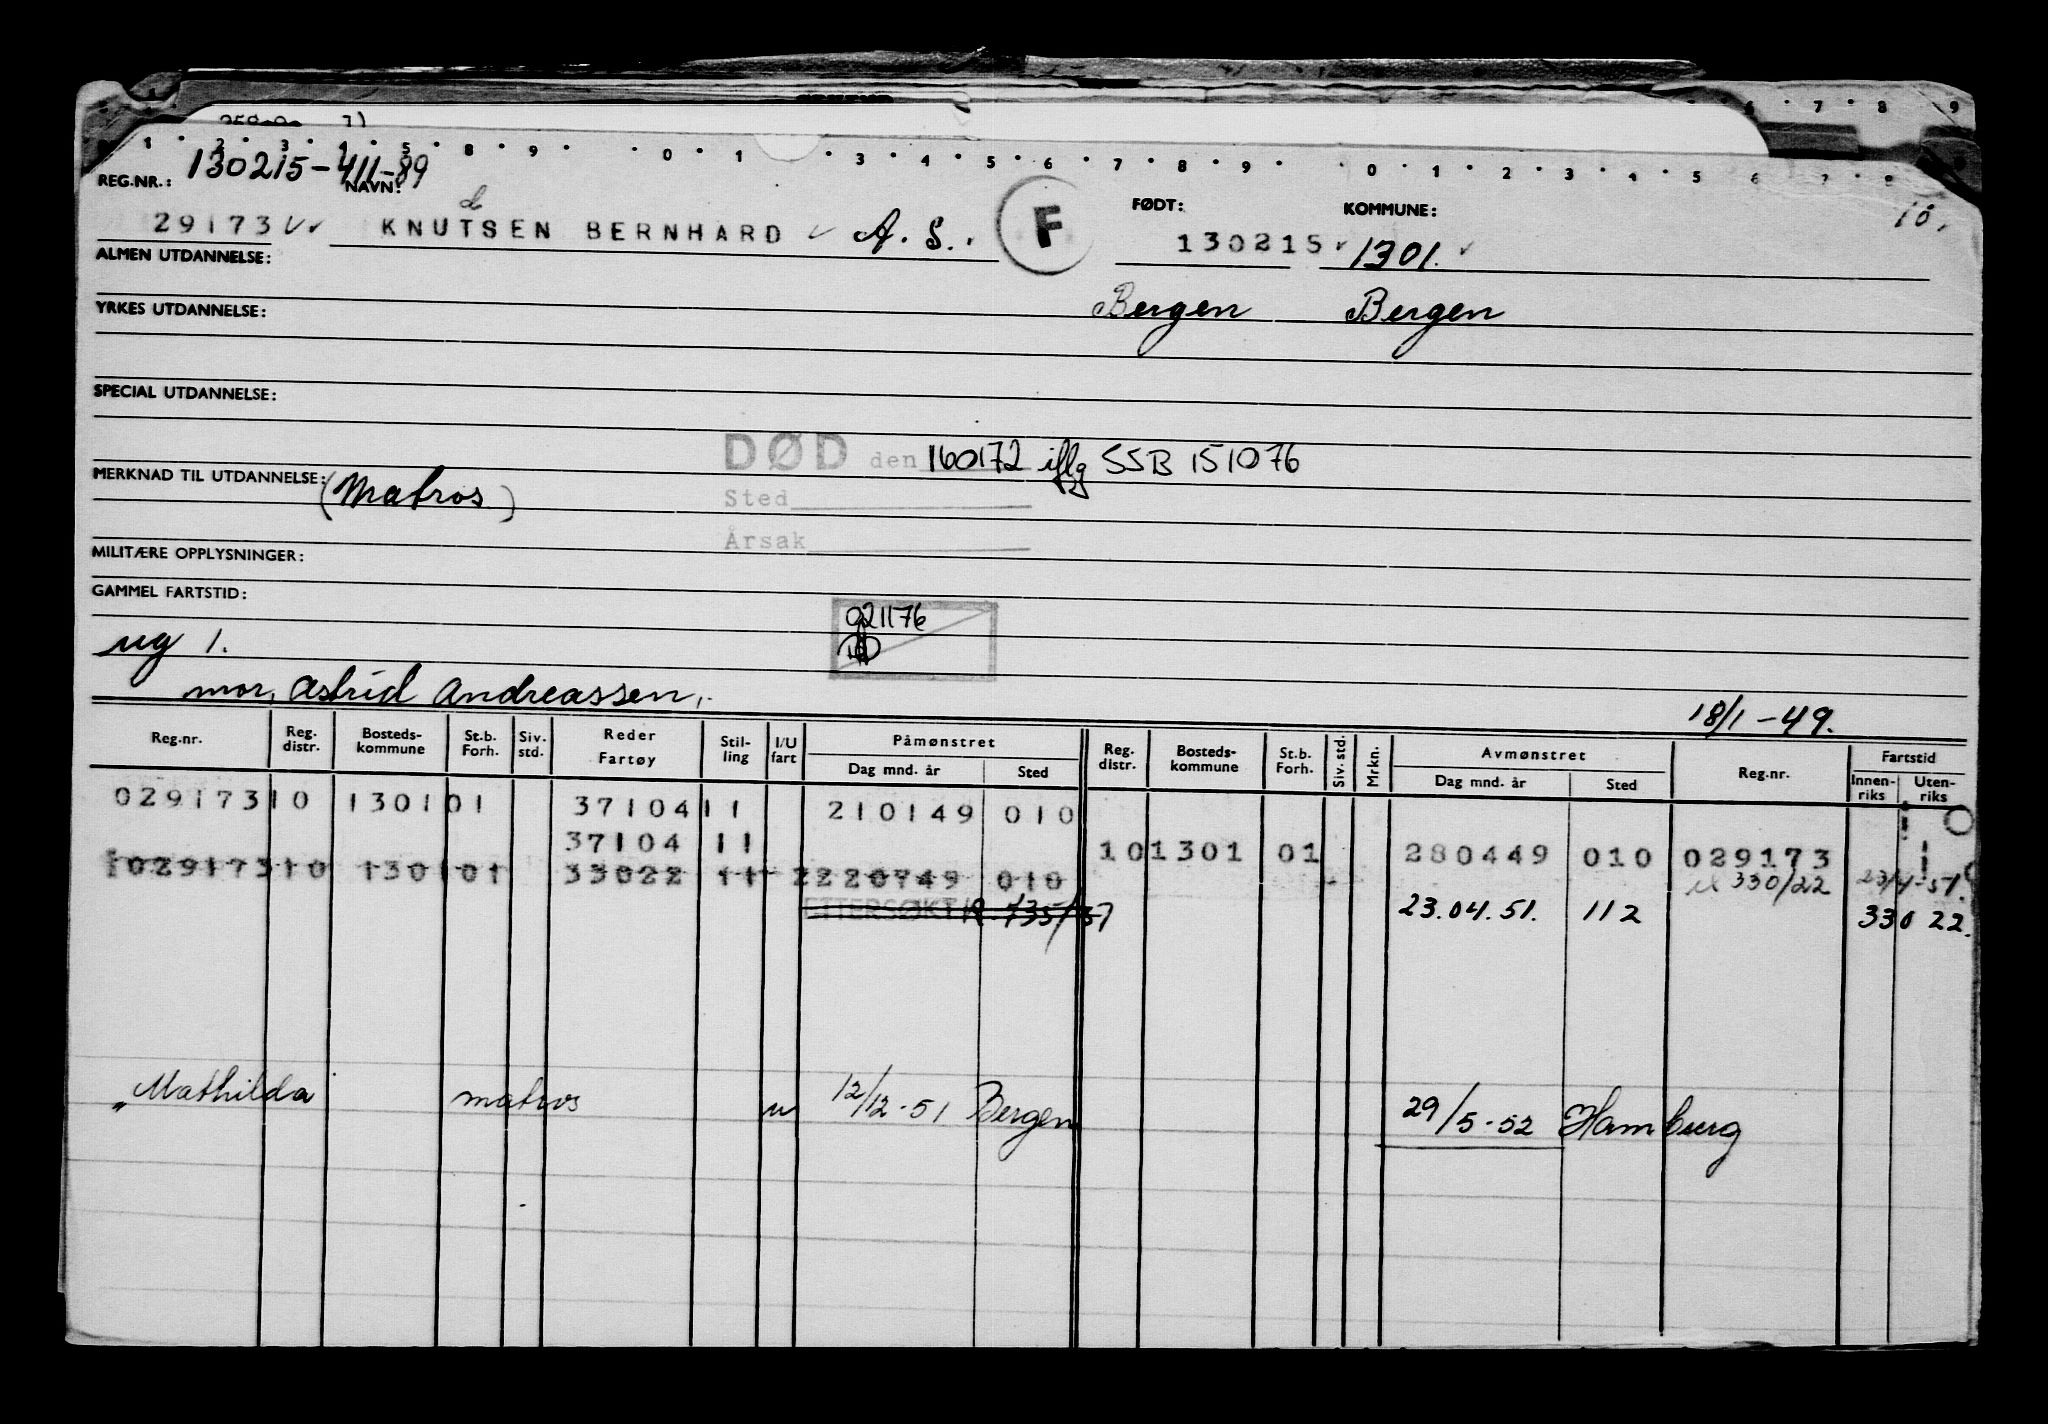 1 2 3 4 5 8 9 0 1 3 4 5 6 7 8 9 0 1 2 3 4 5 6 7 8
6 7 8 9
REG.NR.: 130215-411-89 NAVN: FØDT: KOMMUNE: 10.
d
29173 KNUTSEN BERNHARD A. S. F 130215 1301.
ALMEN UTDANNELSE:
YRKES UTDANNELSE: Bergen Bergen
SPECIAL UTDANNELSE:
DØD den 160172 iflg SSB 151076
MERKNAD TIL UTDANNELSE: (Matros)
Sted
Årsak
MILITÆRE OPPLYSNINGER:
GAMMEL FARTSTID:
021176
ug 1.
mor, Astrid Andreassen,
18/1-49.
Reg.nr. Reg. distr. Bosteds-kommune St.b. Forh. Siv. std. Reder Fartøy Stil-ling I/U fart Påmønstret Dag mnd. år Sted Reg. distr. Bosteds-kommune St.b. Forh. Siv. std. Mrkn. Avmønstret Dag mnd. år Sted Reg.nr. Fartstid Innen-riks Uten-riks
029173 10 1301 01 37104 11 210149 010
37104 11 10 1301 01 280449 010 029173
029173 10 1301 01 33022 11 2 220749 010 330/22 23/4-51.
ETTERSØKT 23.04.51. 112 330 22.
"Mathilda matros u 12/12-51 Bergen 29/5-52 Hamburg